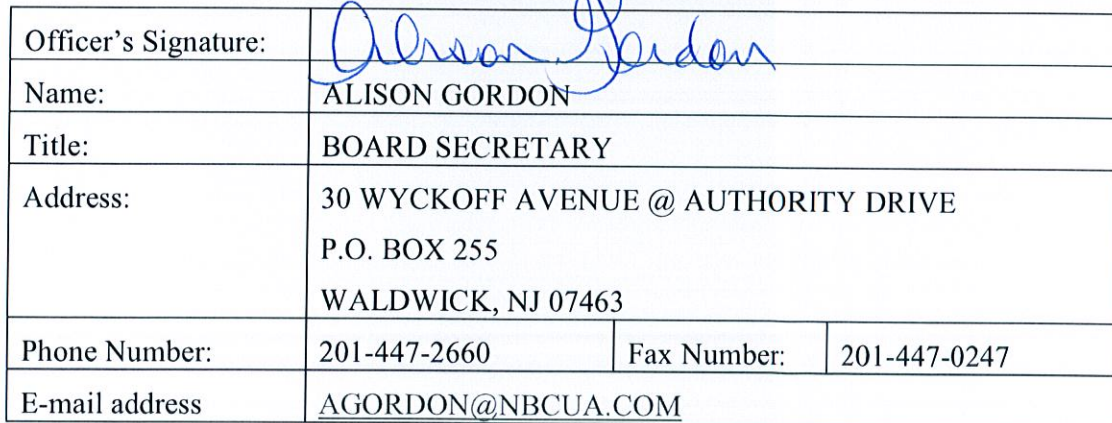 Officer's Signature: Alison Gordon
Name: ALISON GORDON
Title: BOARD SECRETARY
Address: 30 WYCKOFF AVENUE @ AUTHORITY DRIVE
P.O. BOX 255
WALDWICK, NJ 07463
Phone Number: 201-447-2660 Fax Number: 201-447-0247
E-mail address AGORDON@NBCUA.COM